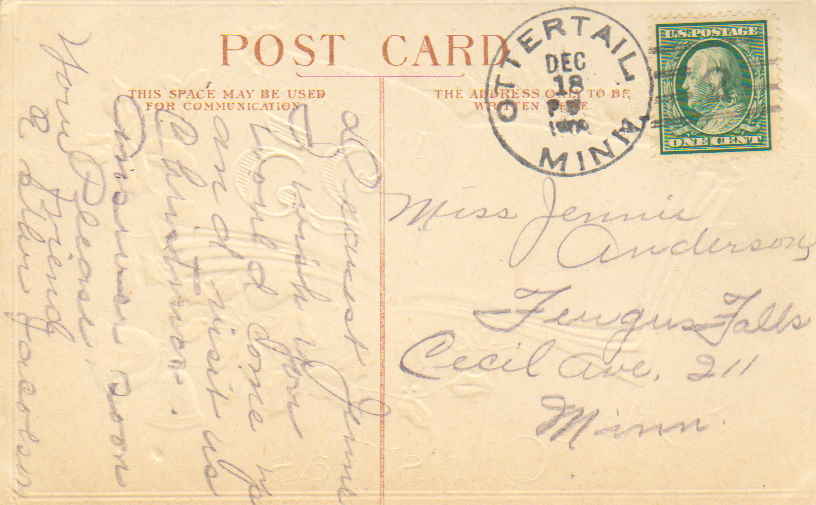 POST CARD
THIS SPACE MAY BE USED
FOR COMMUNICATION
THE ADDRESS ONLY TO BE
WRITTEN HERE
OTTERTAIL,
DEC
18
MINN.
U.S. POSTAGE
ONE CENT
Miss Jennie
Anderson,
Fergus Falls
Cecil Ave, 211
Minn.
Dearest Jennie
I wish you
would come up
and visit us
Christmas.
Answer soon
Please.
Your friend